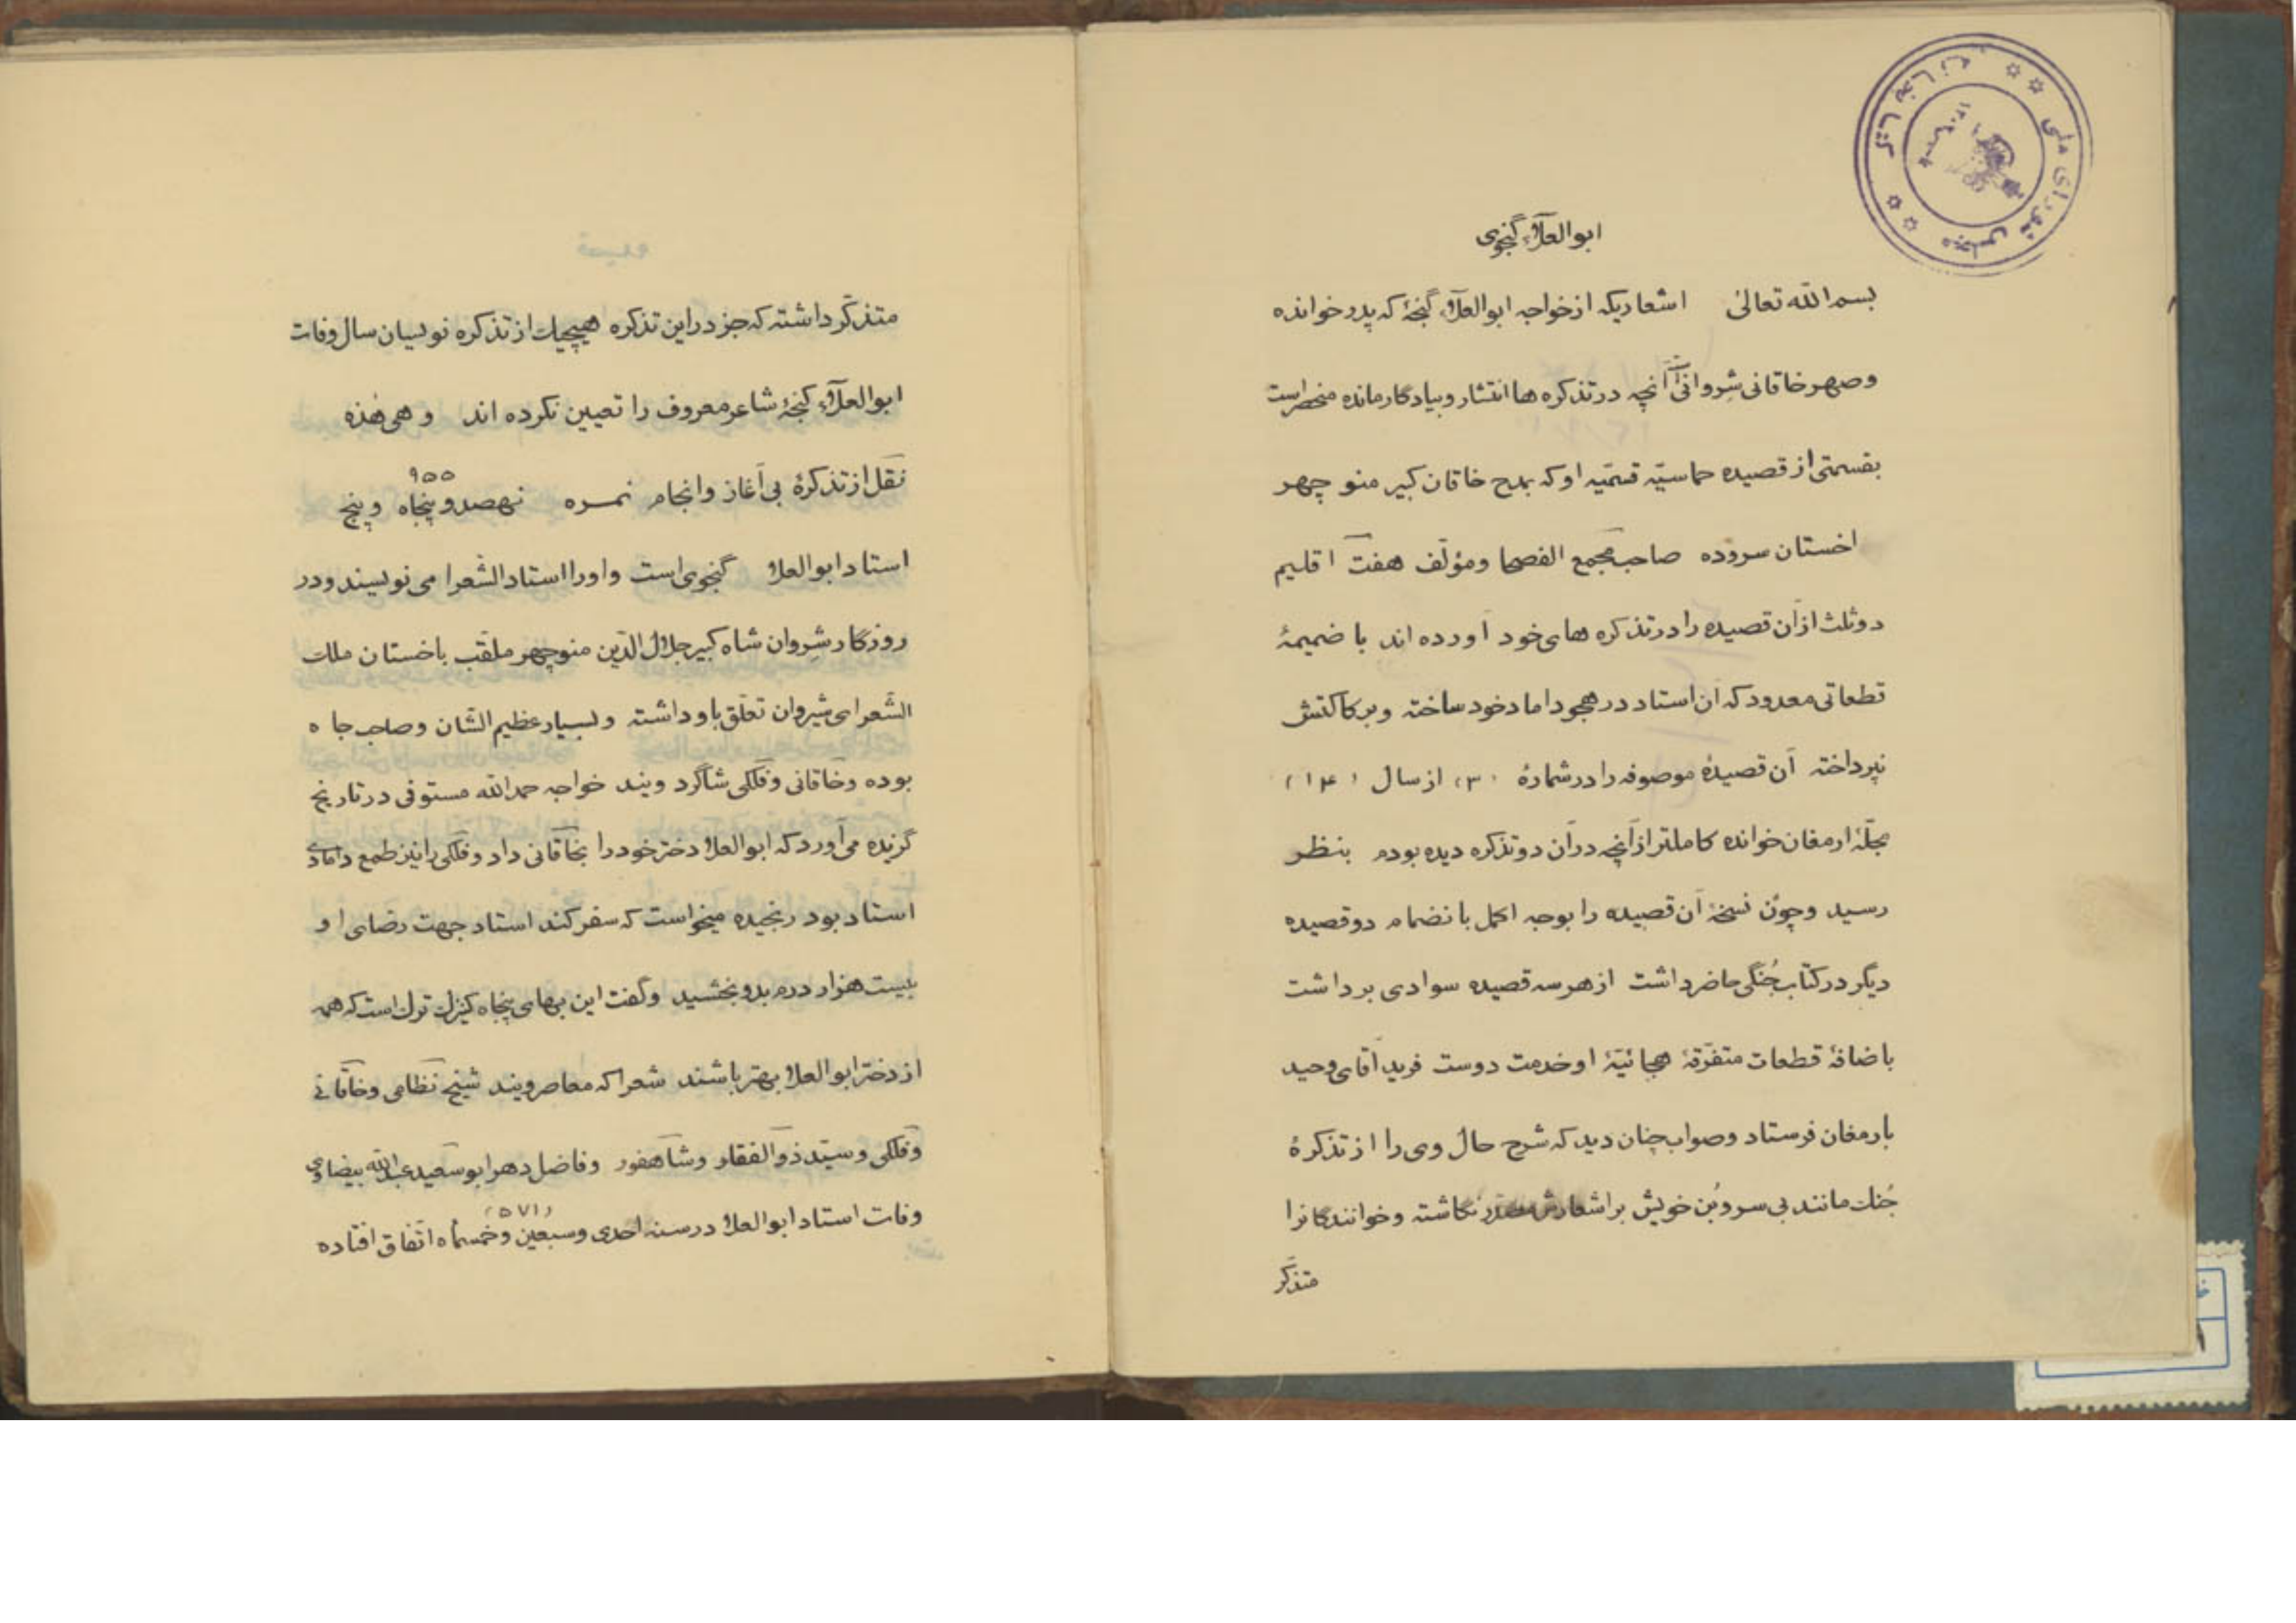 ابوالعلاء گنجوی
بسم الله تعالی اشعاریکه از خواجه ابوالعلاء گنجۀ که پدر خوانده
وصهر خاقانی شروانی آنچه در تذکره ها انتشار و بیادگار مانده منحصراست
بقسمتی از قصیده حماسیّه قسمیّه او که بمدح خاقان کبیر منوچهر
اخستان سروده صاحب مجمع الفصحا ومؤلّف هفت اقلیم
دوثلث ازآن قصیده را در تذکره های خود آورده اند با ضمیمۀ
قطعاتی معدود که ان استاد در هجو داماد خود ساخته وبرکاکتش
نپرداخته آن قصیدۀ موصوفه را در شمارۀ (۳) از سال (۱۴)
مجلّۀ ارمغان خوانده کاملتر ازآنچه درآن دو تذکره دیده بودم بنظر
رسید و چون نسخۀ آن قصیده را بوجه اکمل بانضمام دو قصیده
دیگر در کتاب جُنگی حاضر داشت از هر سه قصیده سوادی برداشت
باضافۀ قطعات متفرّقۀ هجائیّۀ او خدمت دوست فرید آقای وحید
بارمغان فرستاد وصواب چنان دید که شرح حال وی را از تذکرۀ
جُنگ مانند بی سر و بُن خویش بر اشعارش نگاشته و خوانندگانرا
متذکّر
متذکّر داشته که جز در این تذکره هیچیک از تذکره نویسان سال وفات
ابوالعلاء گنجۀ شاعر معروف را تعیین نکرده اند و هی هٰذه
نقل از تذکرۀ بی آغاز و انجام نمره نهصد و پنجاه و پنج
۹۵۵
استاد ابوالعلا گنجوی است و او را استاد الشّعرا می نویسند و در
روزگار شروان شاه کبیر جلال الدّین منوچهر ملقّب باخستان ملک
الشّعرای شیروان تعلّق باو داشته و بسیار عظیم الشّان و صاحب جاه
بوده و خاقانی و فلکی شاگرد ویند خواجه حمدالله مستوفی در تاریخ
گزیده می آورد که ابوالعلا دختر خود را بخاقانی داد و فلکی را نیز طمع دامادی
استاد بود رنجیده میخواست که سفر کند استاد جهت رضای او
بیست هزار درم بدو بخشید و گفت این بهای پنجاه کنیزک ترک است که همه
از دختر ابوالعلا بهتر باشند شعرا که معاصر ویند شیخ نظامی و خاقانی
و فلکی و سیّد ذوالفقار و شاهفور و فاضل دهر ابو سعید عبدالله بیضاوی
وفات استاد ابوالعلا در سنه احدی و سبعین و خمسمأه اتّفاق افتاده
(۵۷۱)
کتابخانه
مجلس شورای ملی